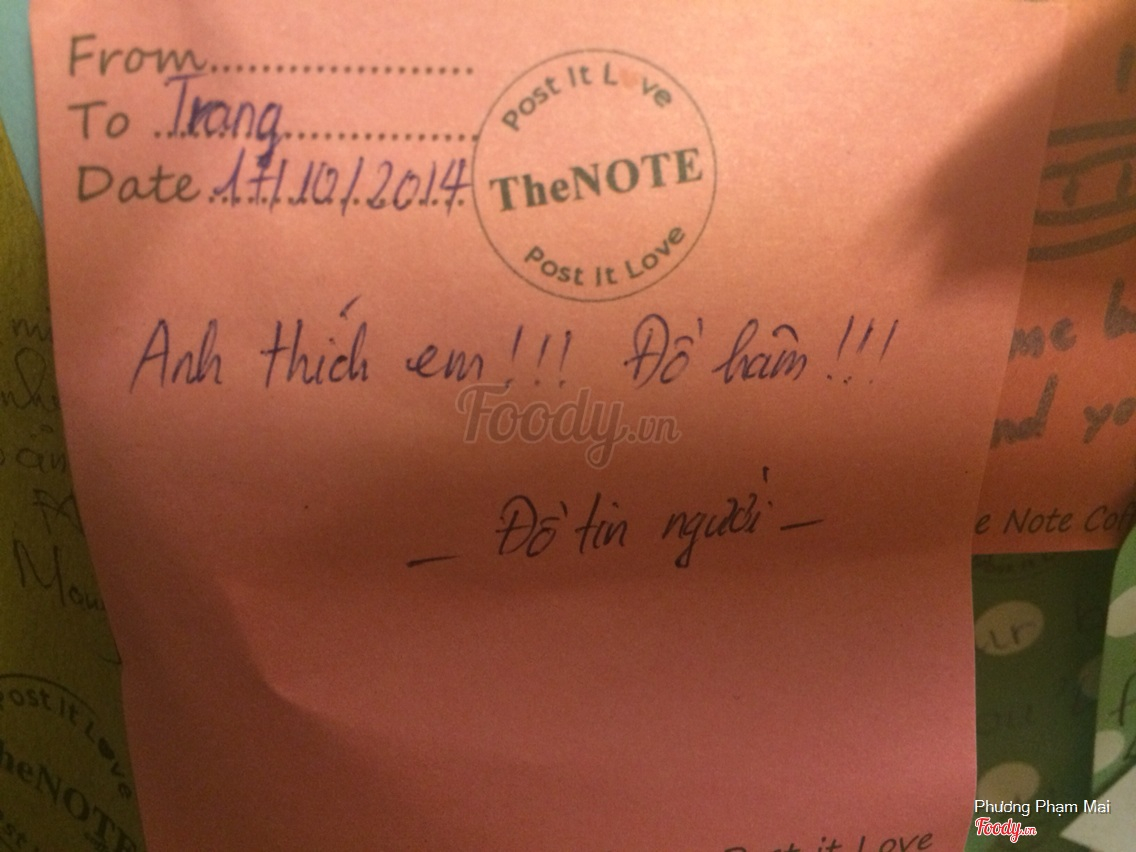 From..........................
To ...Trang...................
Date 17/10/2014
Post it Love
TheNOTE
Post it Love
Anh thích em!!! Đồ hâm!!!
_ Đồ tin người _
Foody.vn
me
nd yo
e Note Cof
Post it Love
heNOTE
Post it Love
Phương Phạm Mai
Foody.vn